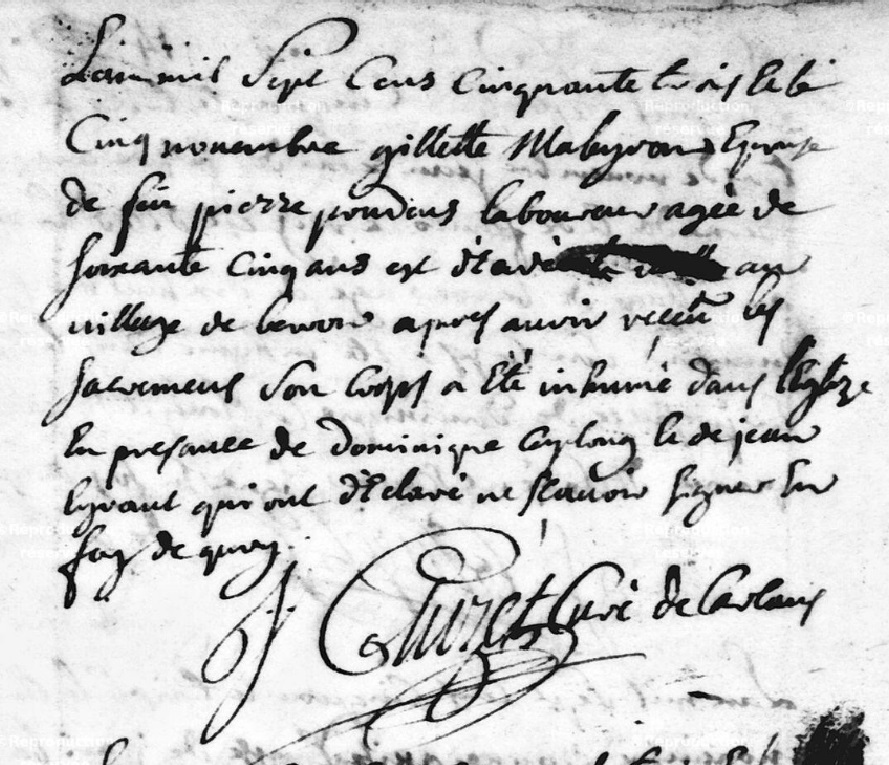 Lan mil Sept Cens Cinquante trois le
Cinq novembre gillette Mabyron Epouse
de feu pierre poudous laboureur agée de
soixante Cinq ans est au
village de apres avoir receu les
sacremens son corps a Eté inhumé dans l'Eglize
En presance de dominique et de jean
qui ont declaré ne scavoir signer En
foy de quoy
Curé de